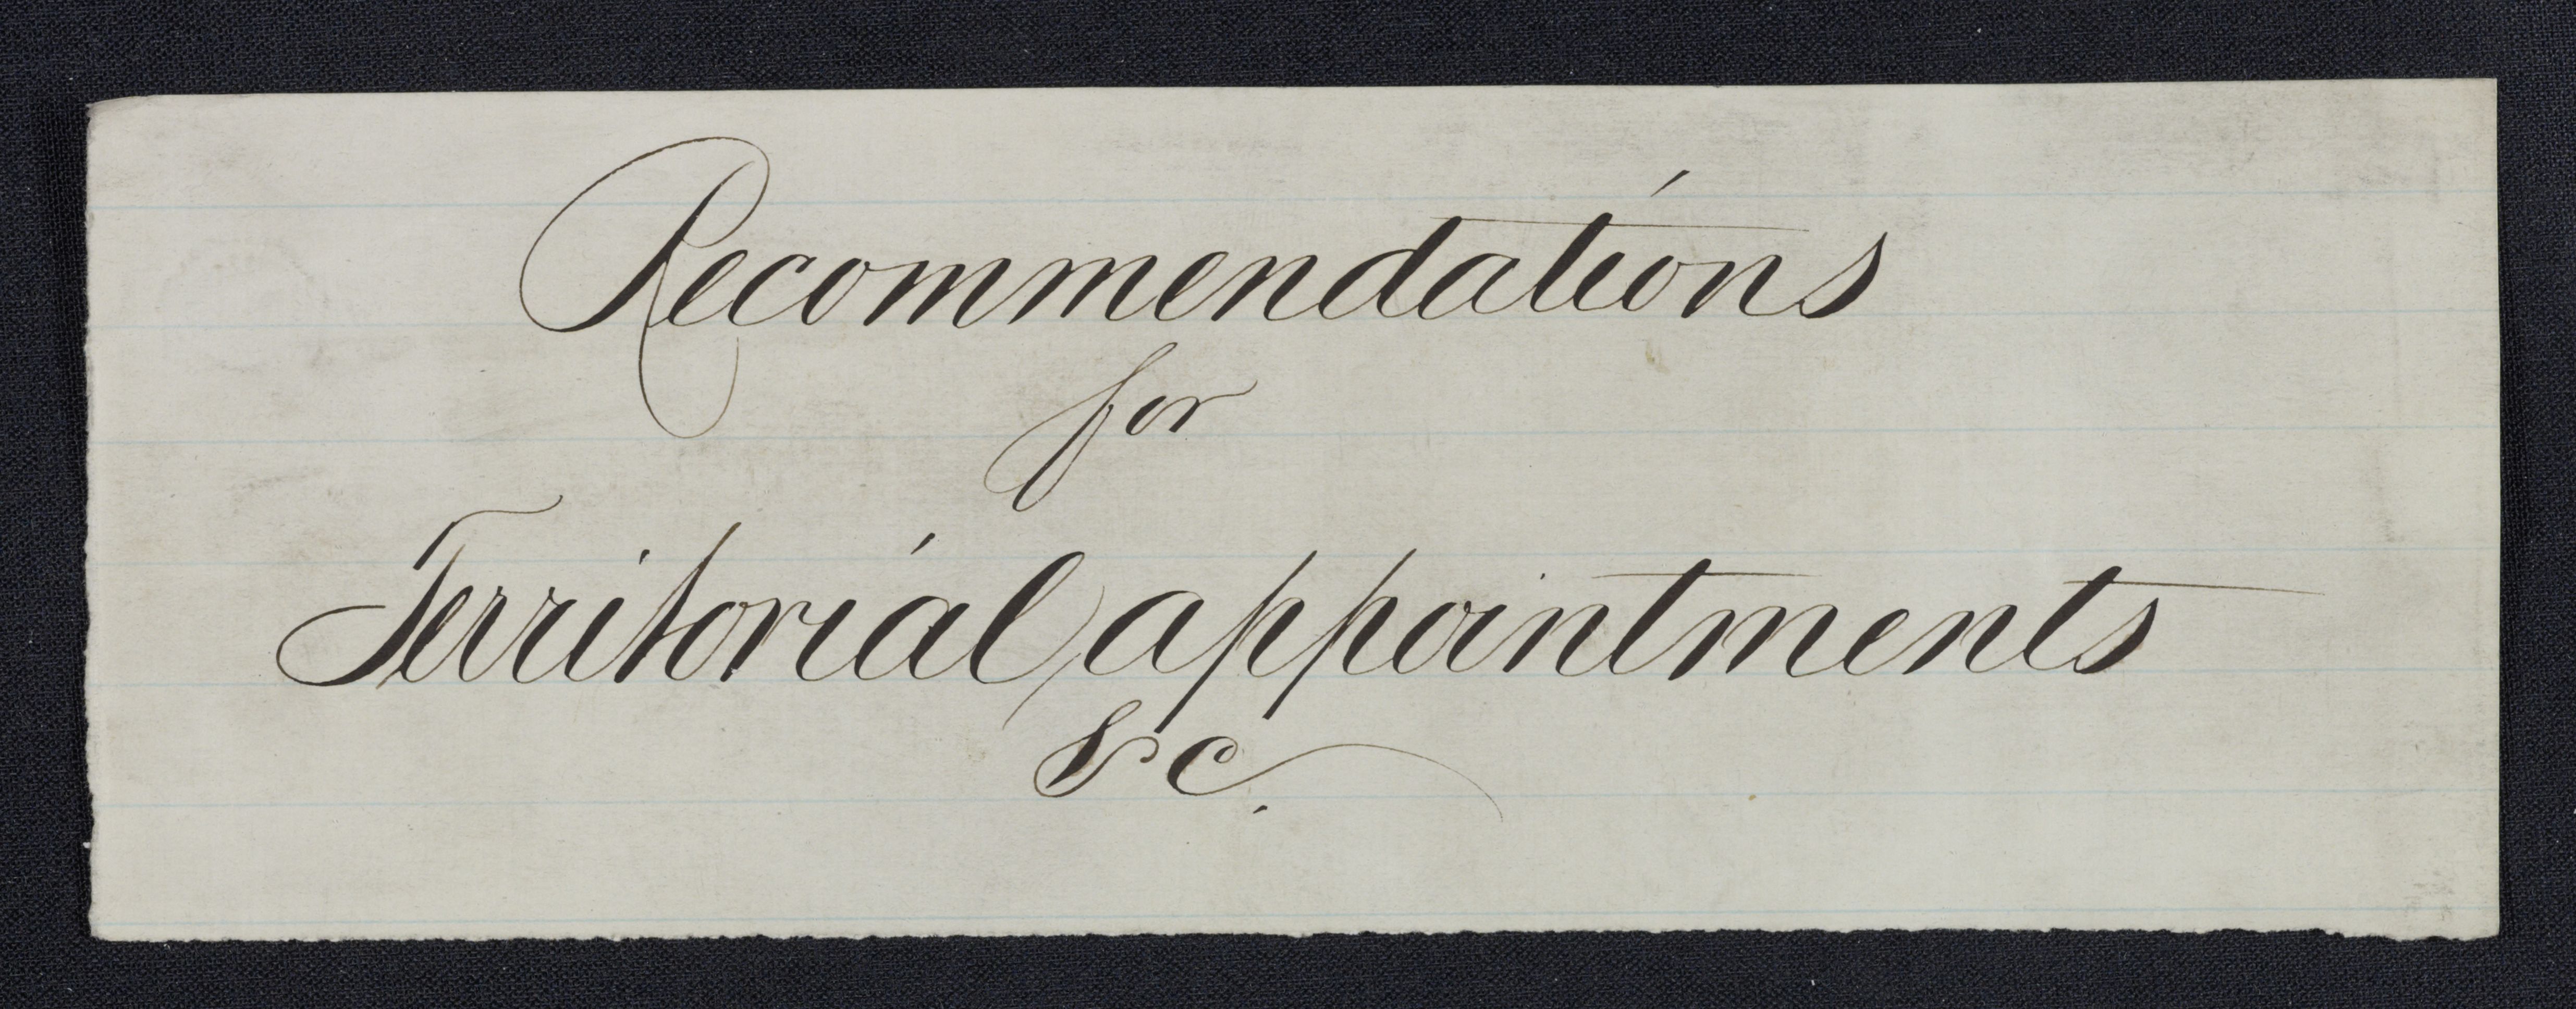 Recommendations
for
Territorial appointments
&c.